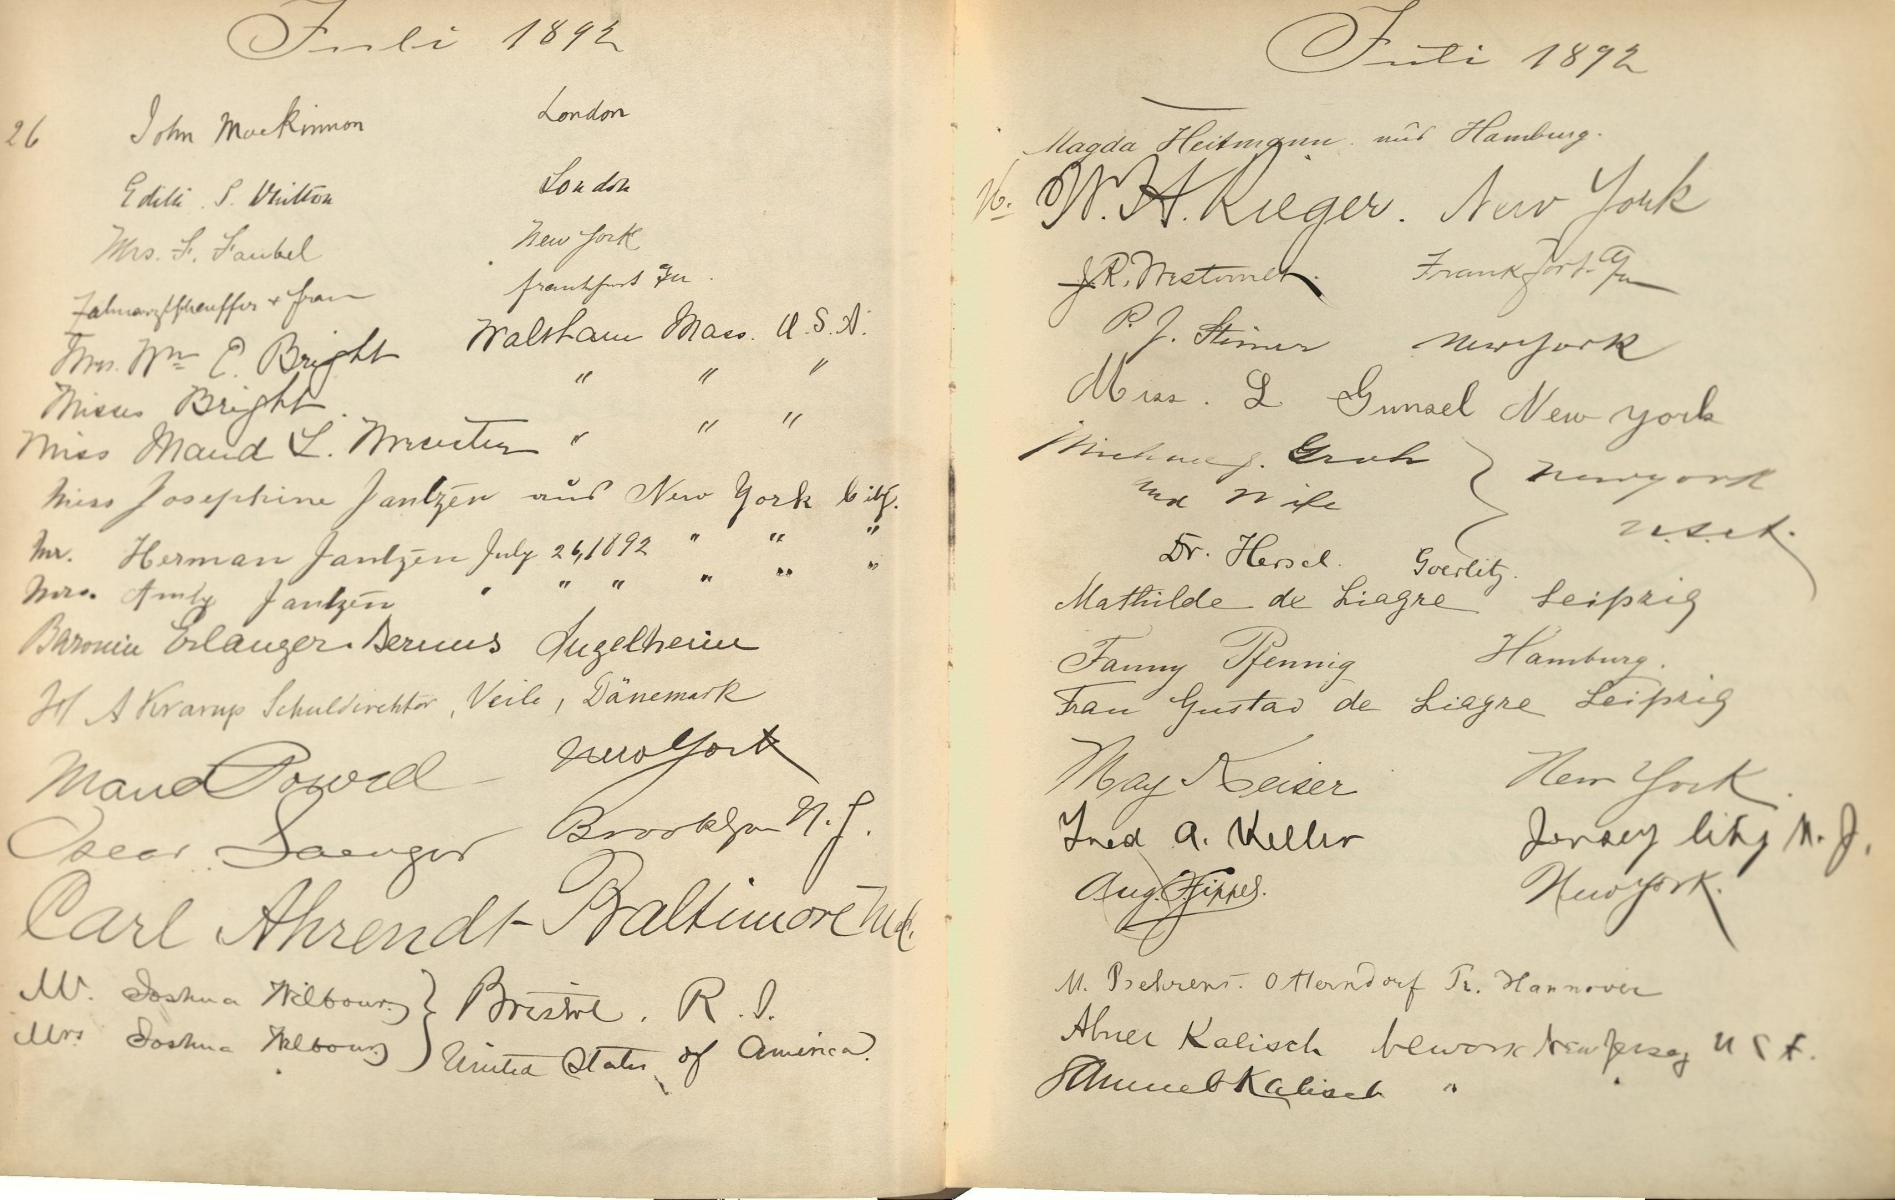 Juli 1892
26 John MacKinnon London
Edith S. Whitton London
Mrs. F. Faubel New York
Frankfurt
Mrs. Wm E. Bright Waltham Mass. U.S.A.
Misses Bright. " " "
Miss Maud L. " " "
Miss Josephine Jantzen aus New York City.
Mr. Herman Jantzen July 26, 1892 " " "
Mrs. Jantzen " " " " " "
Baronin Erlanger-Bernus Ingelheim
H A Krarup Schuldirektör, Veile, Dänemark
Maud Powell New York
Oscar Saenger Brooklyn N.Y.
Carl Ahrendt - Baltimore Md.
Mr. Joshua Wilbour } Bristol, R.I.
Mrs Joshua Wilbour } United States of America.
Juli 1892
Magda Heitmann aus Hamburg.
W. H. Kieger. New York
J.R. Frankfort
P. J. New York
Miss. L Gunsel New York
Groh } New York
and Wife U.S.A.
Dr. Hersel. Goerlitz.
Mathilde de Liagre Leipzig
Fanny Pfennig Hamburg.
Frau Gustav de Liagre Leipzig
May Keiser New York.
Fred A. Keller Jersey City N.J.
Aug. New York.
M. Behrens. Otterndorf Pr. Hannover
Abner Kalisch Newark New Jersey U S A.
Samuel Kalisch " "